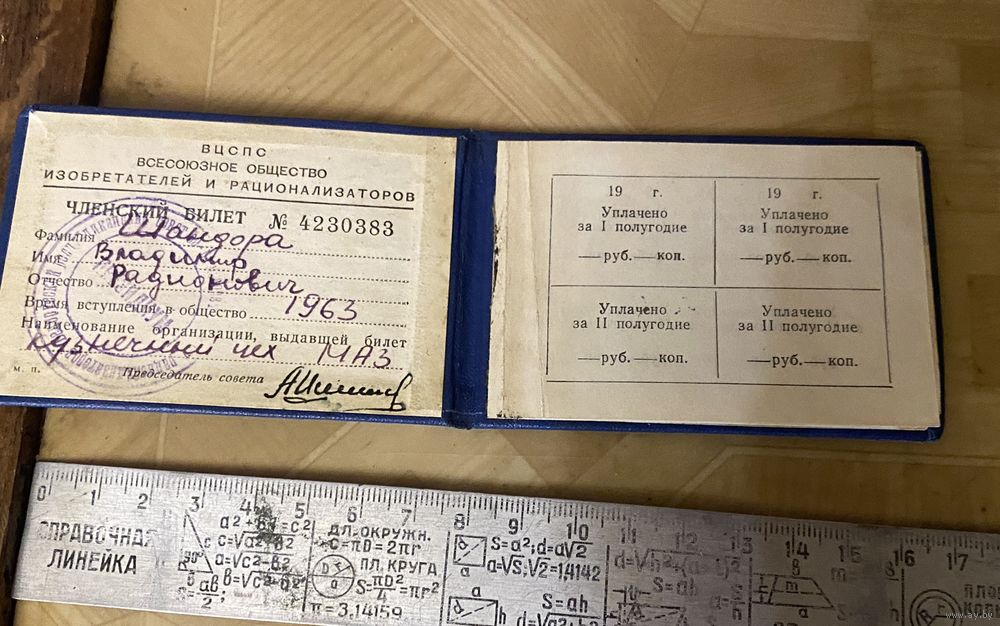 ВЦСПС
ВСЕСОЮЗНОЕ ОБЩЕСТВО
ИЗОБРЕТАТЕЛЕЙ И РАЦИОНАЛИЗАТОРОВ
ЧЛЕНСКИЙ БИЛЕТ № 4230383
Фамилия Шандора
Имя Владимир
Отчество Радионович
Время вступления в общество 1963
Наименование организации, выдавшей билет
кузнечный цех МАЗ
м. п. Председатель совета
19 г.
Уплачено
за I полугодие
—руб.—коп.
19 г.
Уплачено
за I полугодие
—руб.—коп.
Уплачено
за II полугодие
—руб.—коп.
Уплачено
за II полугодие
—руб.—коп.
0 1 2 3 4 5 6 7 8 9 10 11 12 13 14 15 16 17
СПРАВОЧНАЯ
ЛИНЕЙКА
ДЛ. ОКРУЖН.
C=πD=2πr
ПЛ. КРУГА
S=πD²/4=πr²
π=3,14159
S=a²; d=a√2
a=√S; √2=1,4142
S=ah
www.ay.by